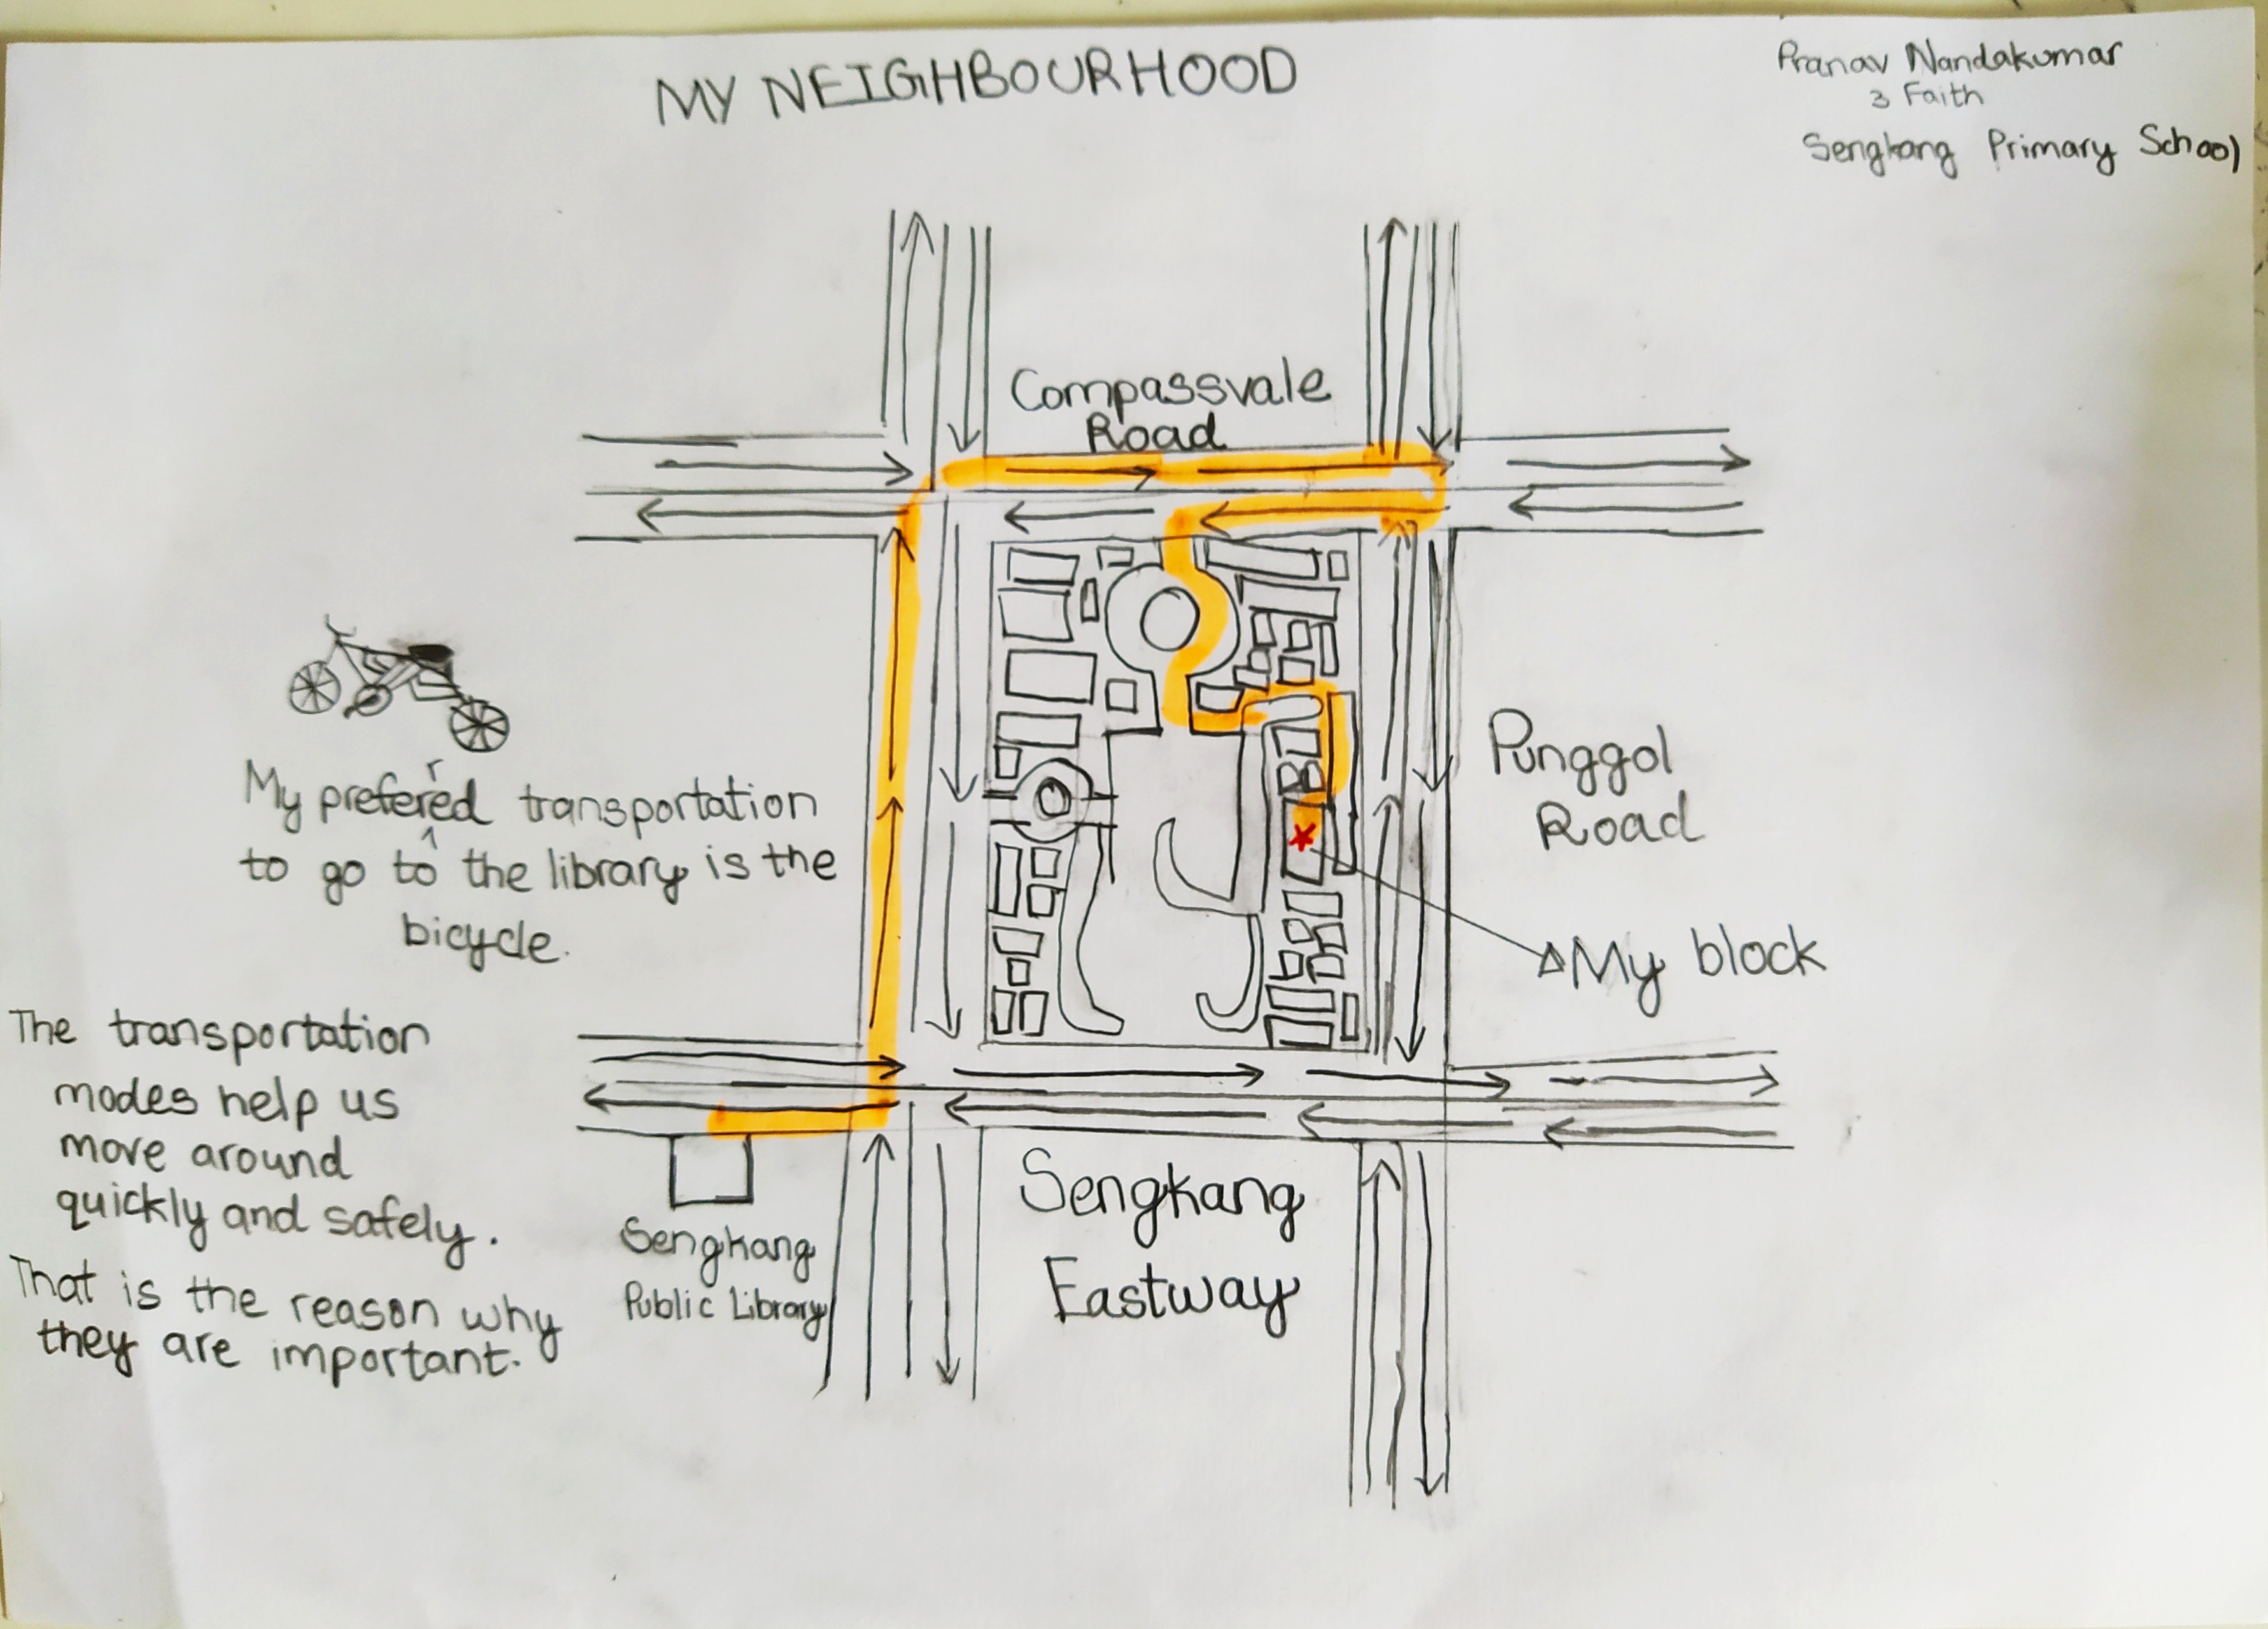 MY NEIGHBOURHOOD
Pranav Nandakumar
3 Faith
Sengkang Primary School
Compassvale
Road
Punggol
Road
My block
My preferred transportation
to go to the library is the
bicycle.
The transportation
modes help us
move around
quickly and safely.
That is the reason why
they are important.
Sengkang
Public Library
Sengkang
Eastway